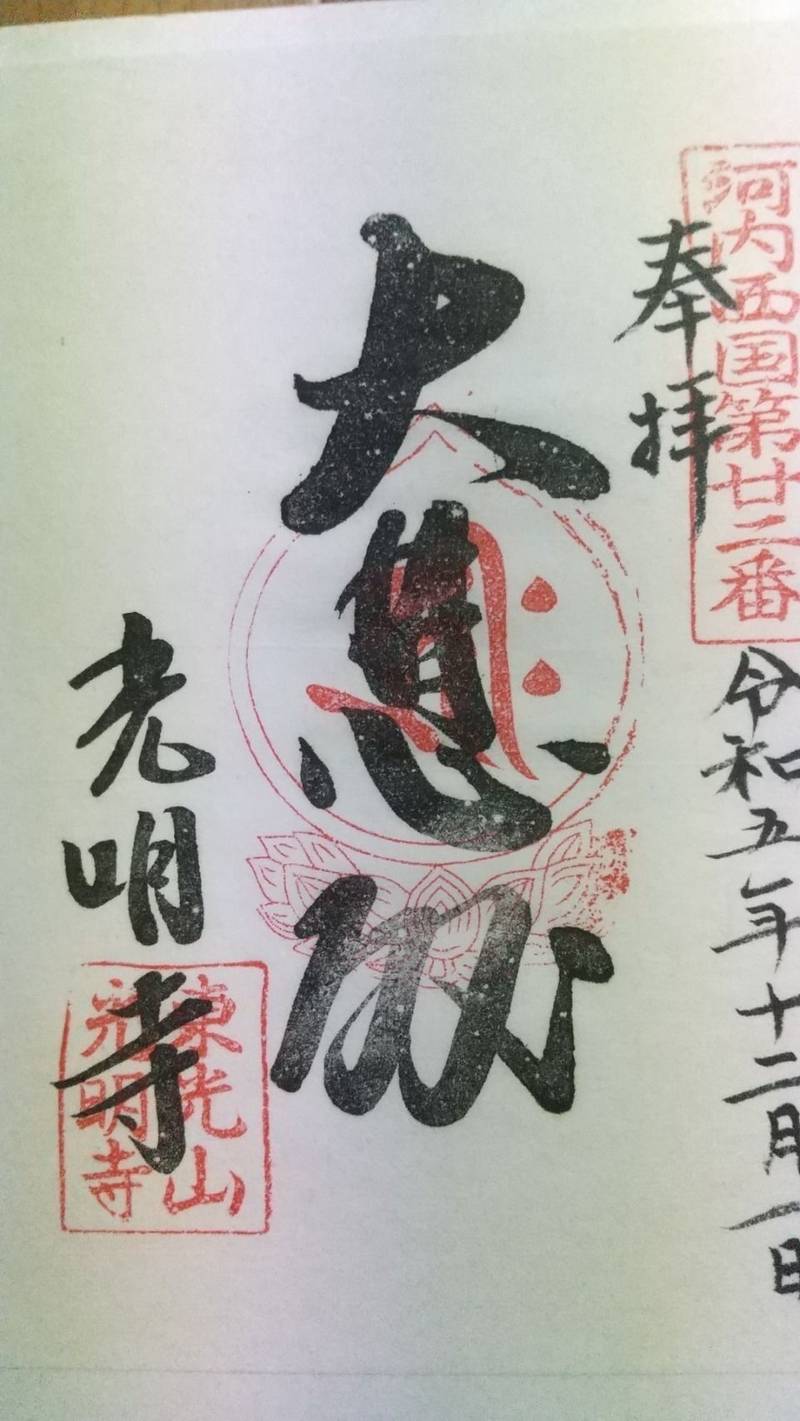 河内西国第廿二番
奉拝
令和五年十二月一日
大
光明寺
東光山
光明寺